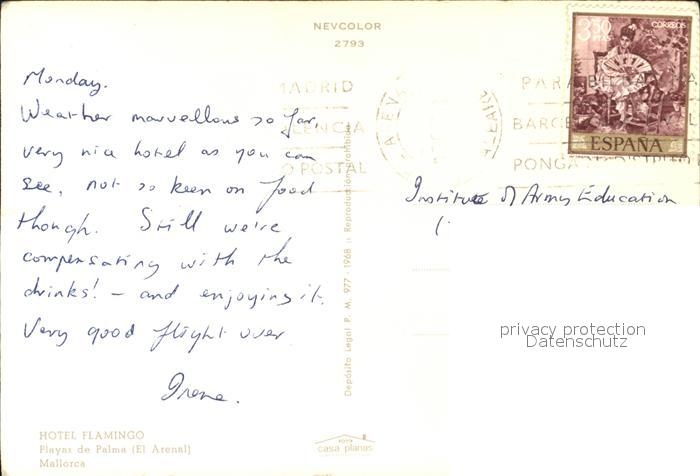 NEVCOLOR
2793
3'50
PTS
CORREOS
ESPAÑA
MADRID
VALENCIA
O POSTAL
PARA
BARCE
PONGA
Monday.
Weather marvellous so far,
very nice hotel as you can
see, not so keen on food
though. Still we're
compensating with the
drinks! – and enjoying it.
Very good flight over.
Irene.
Institute of Army Education
Depósito Legal P. M. 977 - 1968 Reproducción prohibida
privacy protection
Datenschutz
HOTEL FLAMINGO
Playas de Palma (El Arenal)
Mallorca
foto
casa planas